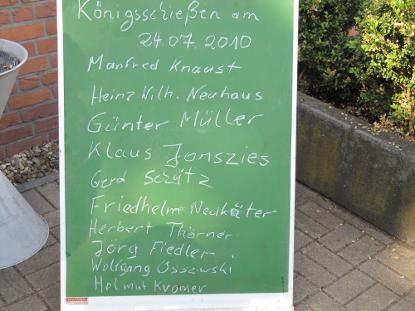 Königsschießen am
24.07.2010
Manfred Knaust
Heinz Wilh. Neuhaus
Günter Müller
Klaus Jonszies
Gerd Schütz
Friedhelm Neukäter
Herbert Thörner
Jörg Fiedler
Wolfgang Ossowski
Helmut Kramer